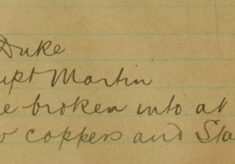 Duke
upt Martin
e broken into at
coppers and Sta